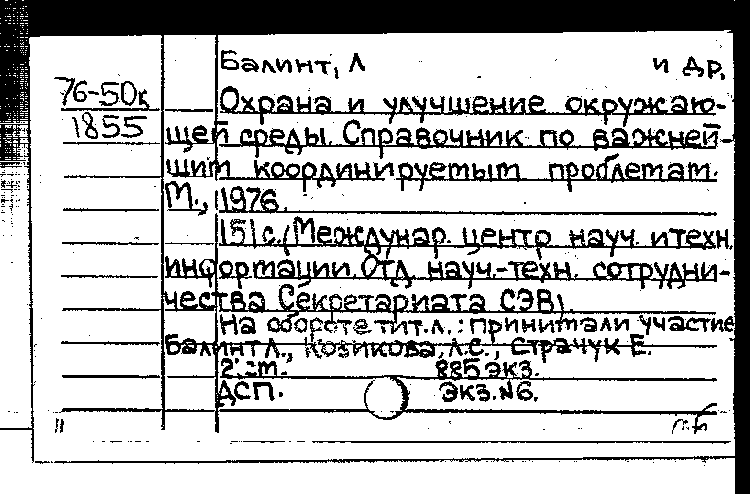 Балинт, Л и др.
76-50к Охрана и улучшение окружаю-
1855 щей среды. Справочник по важней-
шим координируемым проблемам.
М., 1976.
151 с. (Междунар. центр науч. и техн.
информации. Отд. науч.-техн. сотрудни-
чества Секретариата СЭВ)
На обороте тит. л.: принимали участие
Балинт Л., Козикова, Л.С., Страчук Е.
885 экз.
ДСП. Экз. №6.